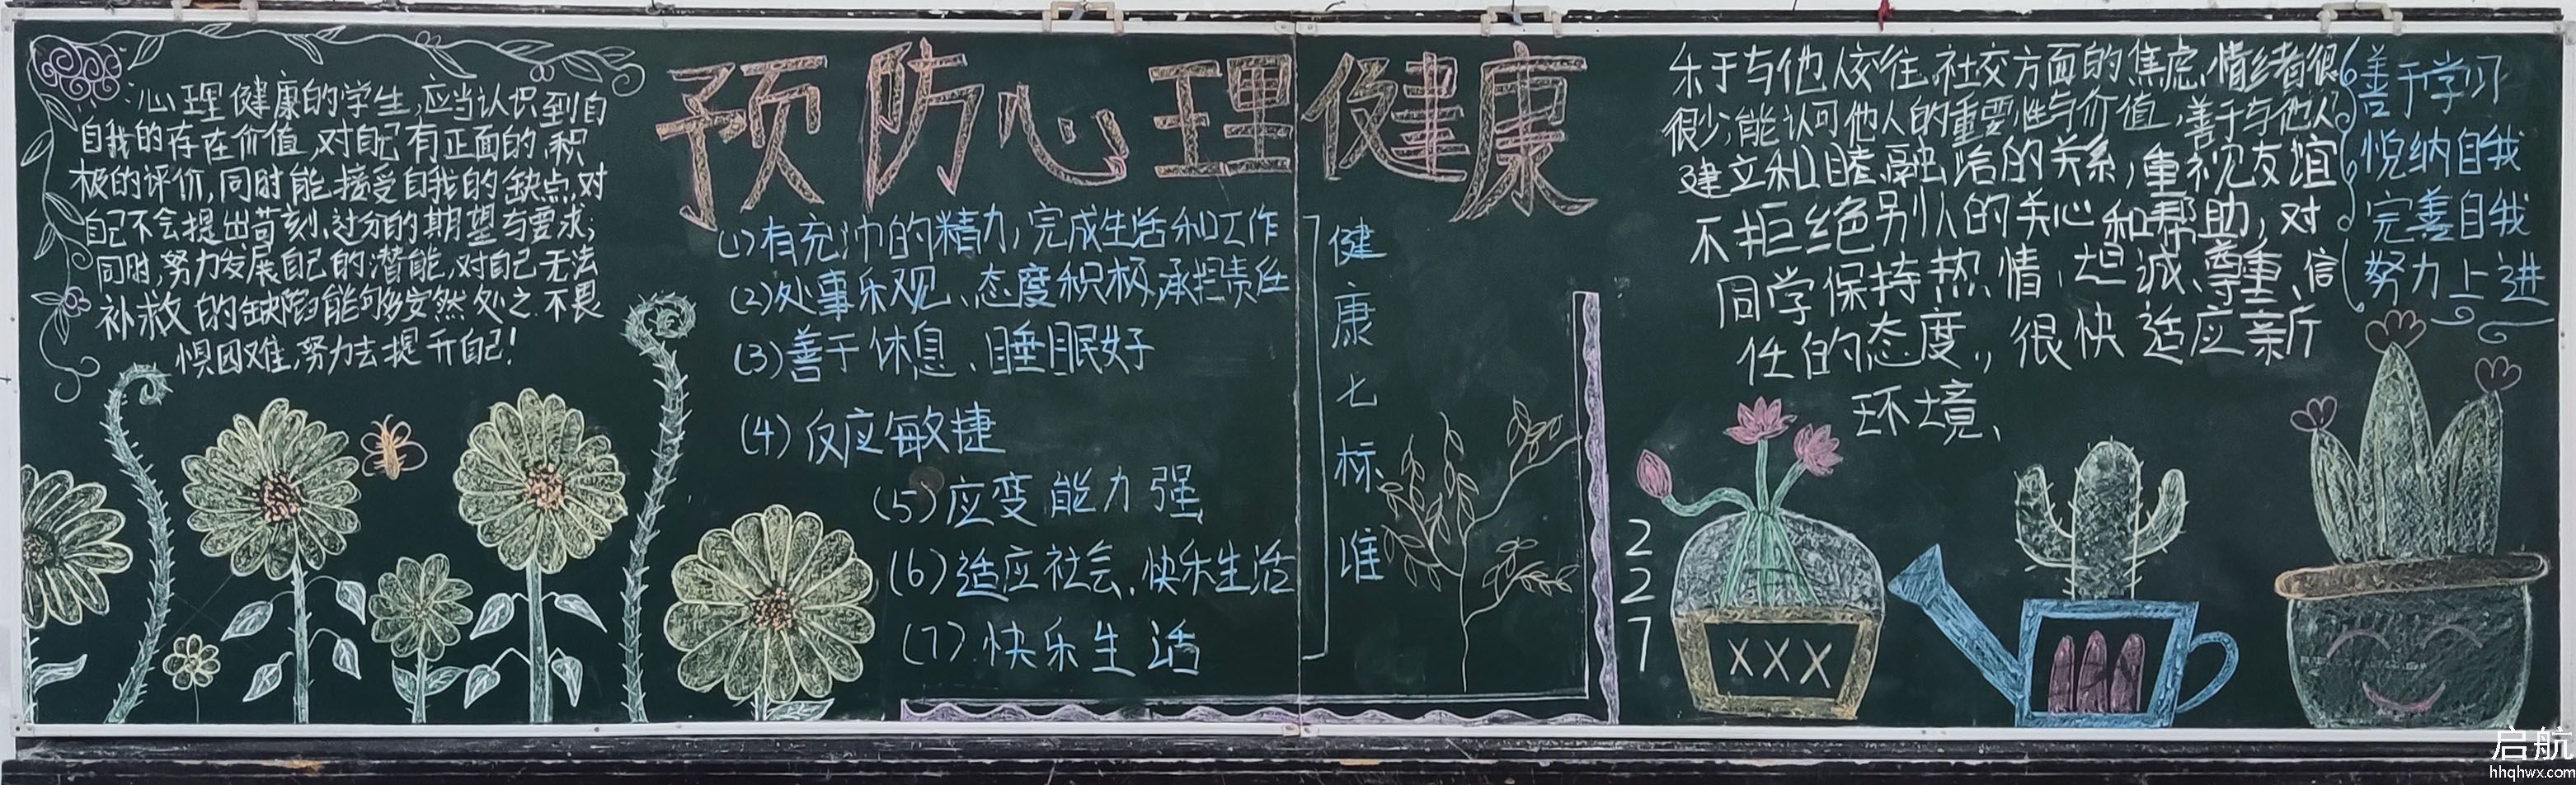 预防心理健康
心理健康的学生,应当认识到自
自我的存在价值,对自己有正面的、积
极的评价,同时能接受自我的缺点,对
自己不会提出苛刻、过分的期望与要求;
同时,努力发展自己的潜能,对自己无法
补救的缺陷能够安然处之.不畏
惧困难,努力去提升自己!
(1)有充沛的精力,完成生活和工作
(2)处事乐观、态度积极,承担责任
(3)善于休息、睡眠好
(4)反应敏捷
(5)应变能力强
(6)适应社会、快乐生活
(7)快乐生活
健康七标准
乐于与他人交往,社交方面的焦虑、情绪者很
很少;能认可他人的重要性与价值,善于与他人
建立和睦融洽的关系,重视友谊
不拒绝别人的关心和帮助,对
同学保持热情、坦诚、尊重、信
任的态度,,很快适应新
环境、
善于学习
悦纳自我
完善自我
努力上进
227
XXX
启航
hhqhwx.com